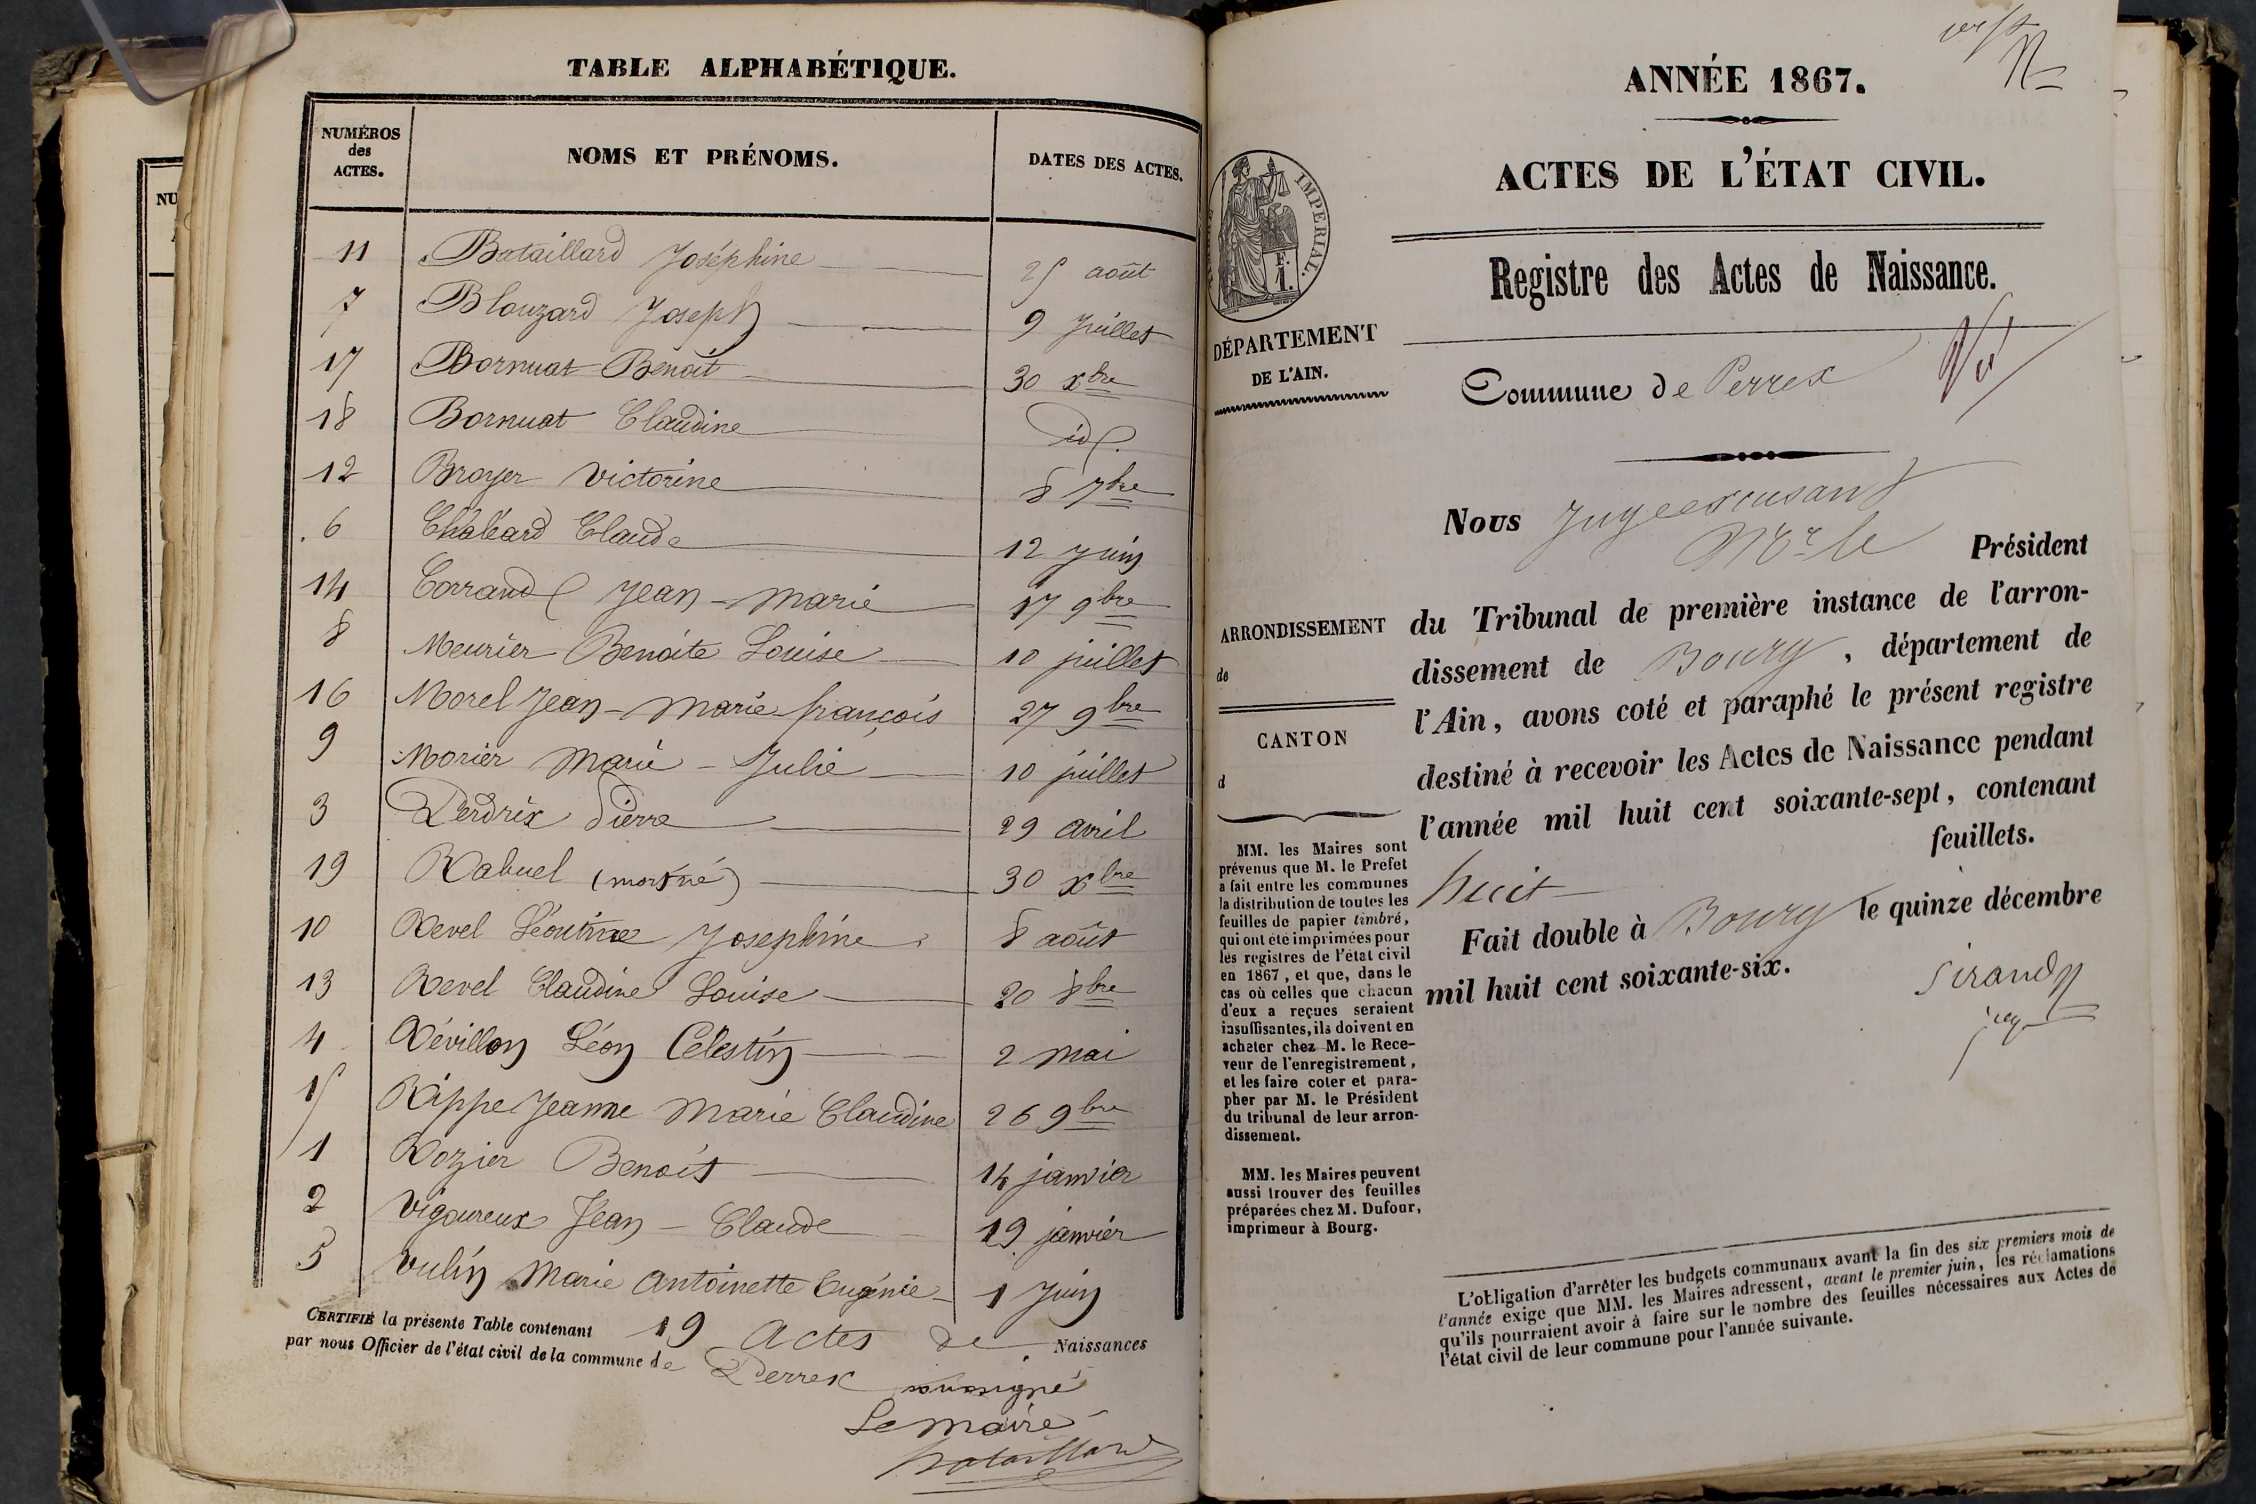 TABLE ALPHABÉTIQUE.
NUMÉROS des ACTES. NOMS ET PRÉNOMS. DATES DES ACTES.
11 Bataillard Joséphine 25 août
7 Blouzard Joseph 9 Juillet
17 Bornuat Benoît 30 xbre
18 Bornuat Claudine id.
12 Broyer Victorine 8 7bre
6 Chaléard Claude 12 Juin
14 Corrand Jean-Marie 17 9bre
8 Meurier Benoite Louise 10 juillet
16 Morel Jean-Marie-françois 27 9bre
9 Morier Marie-Julie 10 juillet
3 Perdrix Pierre 29 avril
19 Rabuel (mort né) 30 xbre
10 Revel Josephine 8 août
13 Revel Claudine Louise 20 8bre
4 Révillon Léon Célestin 2 mai
15 Rippe Jeanne Marie Claudine 26 9bre
1 Rozier Benoit 14 janvier
2 Vigoureux Jean-Claude 19 janvier
5 Vulin Marie Antoinette Eugénie 1 Juin
CERTIFIÉ la présente Table contenant 19 Actes de Naissances
par nous Officier de l'état civil de la commune de Perrex soussigné
Le maire
Bataillard
NU
ANNÉE 1867.
ACTES DE L'ÉTAT CIVIL.
IMPERIAL.
F.
1.
Registre des Actes de Naissance.
DÉPARTEMENT
DE L'AIN.
Commune de Perrex
Nous Juge excusant
Mr le Président
ARRONDISSEMENT
de
CANTON
d
du Tribunal de première instance de l'arron-
dissement de Bourg, département de
l'Ain, avons coté et paraphé le présent registre
destiné à recevoir les Actes de Naissance pendant
l'année mil huit cent soixante-sept, contenant
huit feuillets.
Fait double à Bourg le quinze décembre
mil huit cent soixante-six.
Sirand
MM. les Maires sont
prévenus que M. le Prefet
a fait entre les communes
la distribution de toutes les
feuilles de papier timbré,
qui ont été imprimées pour
les registres de l'état civil
en 1867, et que, dans le
cas où celles que chacun
d'eux a reçues seraient
insuffisantes, ils doivent en
acheter chez M. le Rece-
veur de l'enregistrement,
et les faire coter et para-
pher par M. le Président
du tribunal de leur arron-
dissement.
MM. les Maires peuvent
aussi trouver des feuilles
préparées chez M. Dufour,
imprimeur à Bourg.
L'obligation d'arrêter les budgets communaux avant la fin des six premiers mois de
l'année exige que MM. les Maires adressent, avant le premier juin, les réclamations
qu'ils pourraient avoir à faire sur le nombre des feuilles nécessaires aux Actes de
l'état civil de leur commune pour l'année suivante.